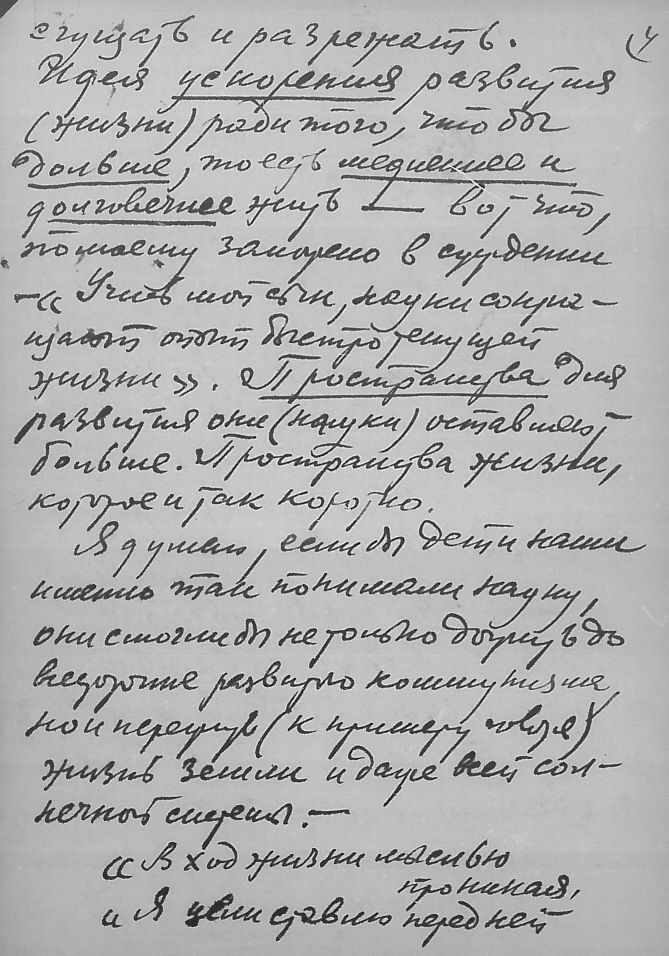 сгущать и разрежать.
(4
Идея ускорения развития
(жизни) ради того, чтобы
дольше, то есть медленнее и
долговечнее жить — вот что,
по моему заложено в суждении
— « Учись мой сын, науки сокра-
щают опыт быстротекущей
жизни ». Пространства для
развития они (науки) оставляют
больше. Пространства жизни,
которое и так коротко.
Я думаю, если бы дети наши
именно так понимали науку,
они смогли бы не только дотянуть до
всесторонне развитого коммунизма,
но и перетянуть (к примеру говоря)
жизнь земли и даже всей сол-
нечной системы. —
« В ход жизни мыслью
проникая,
и Я цели ставлю перед ней